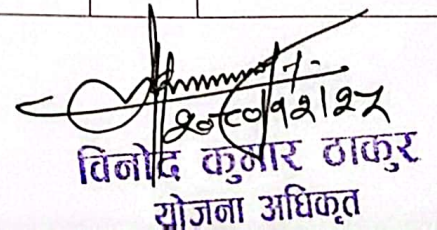 २०८०/१२/२८
विनोद कुमार ठाकुर
योजना अधिकृत